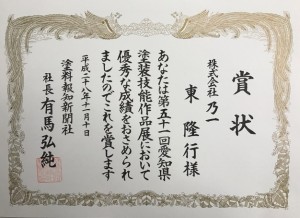 賞状
株式会社 乃一
東 隆行様
あなたは第五十一回愛知県
塗装技能作品展において
優秀な成績をおさめられ
ましたのでこれを賞します
平成二十八年十一月十日
塗料報知新聞社
社長 有馬弘純